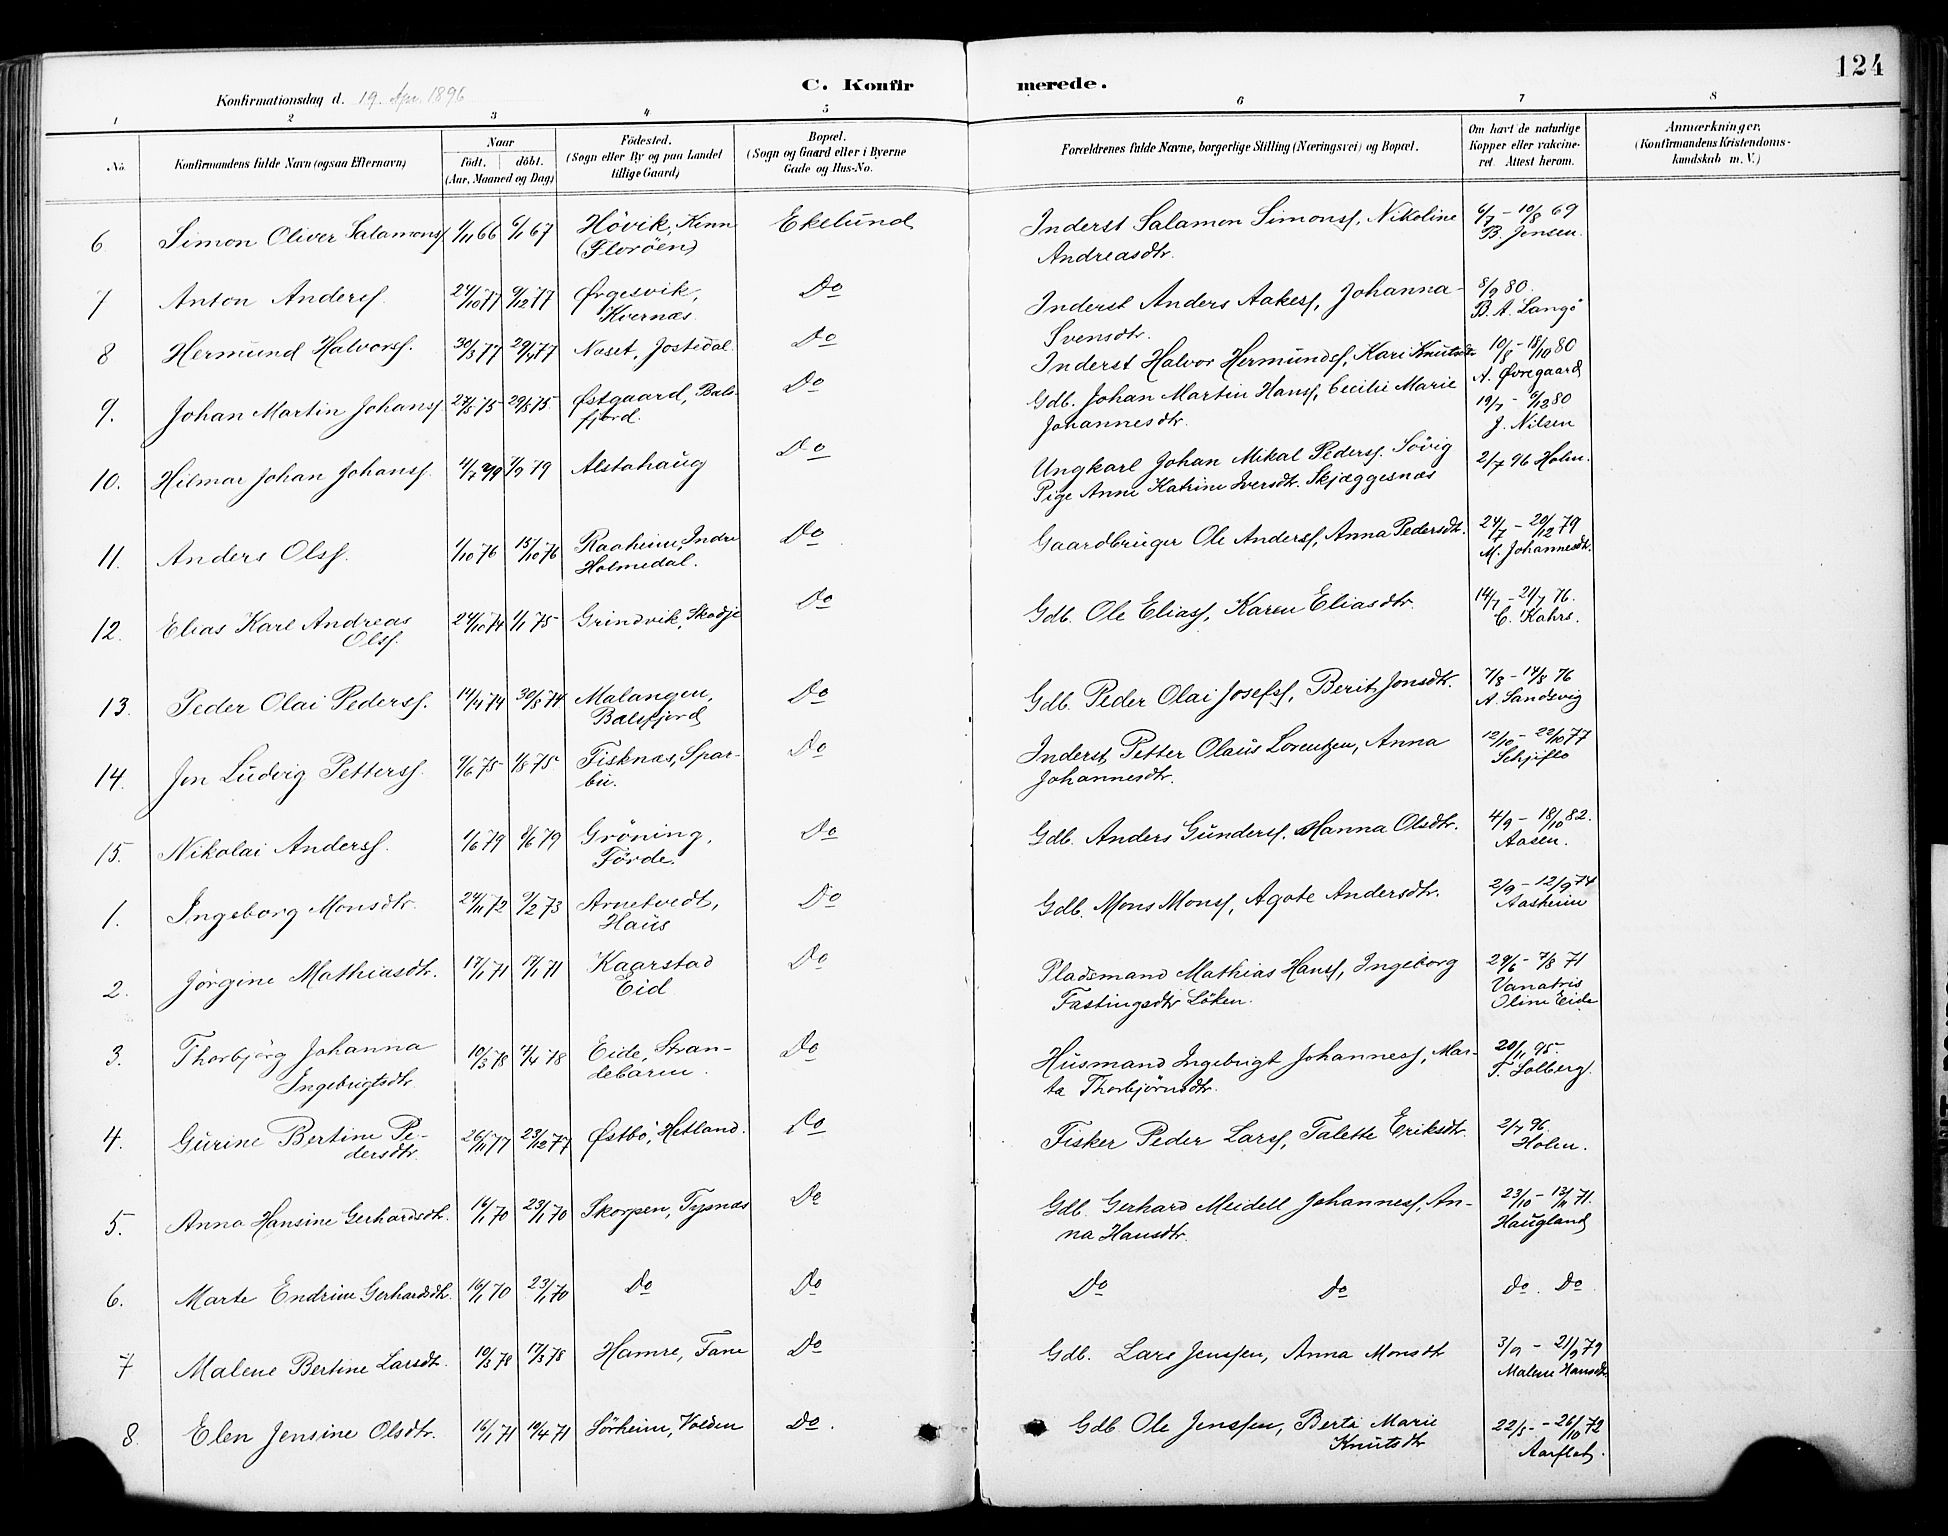 124
C. Konfirmerede.
Konfirmationsdag d. 19. Apr. 1896
1 2 3 4 5 6 7 8
No.
Konfirmandens fulde Navn (ogsaa Efternavn)
Naar
födt. döbt.
(Aar, Maaned og Dag)
Födested.
(Sogn eller By og paa Landet
tillige Gaard)
Bopæl.
(Sogn og Gaard eller i Byerne
Gade og Hus-No.
Forældrenes fulde Navne, borgerlige Stilling (Næringsvei) og Bopæl.
Om havt de naturlige
Kopper eller vakcine-
ret. Attest herom.
Anmærkninger.
(Konfirmandens Kristendoms-
kundskab m. V.)
6 Simon Oliver Salamons. 1/11 66 6/1 67 Hövik, Kinn Ekelund Inderst Salamon Simons, Nikoline 6/7 - 10/8 69
(Floröen) Andreasdtr. B. Jensen.
7 Anton Anders. 24/10 77 9/12 77 Ørgesvik, Do Inderst Anders Aakes, Johanna 8/9 80.
Kvernæs. Svensdtr. B. A. Langö
8 Hermund Halvors. 30/3 77 29/4 77 Naset, Jostedal. Do Inderst Halvor Hermunds, Kari Knutsdtr 10/8 - 18/10 80
A. Øvregaard
9. Johan Martin Johans 27/5 75 29/8 75. Østgaard, Bals- Do Gdb. Johan Martin Hans, Cecilie Marie 19/7 - 6/12 80
fjord. Johannesdtr. J. Nilsen
10. Hilmar Johan Johans. 4/7 79 7/9 79 Alstahaug Do Ungkarl Johan Mikal Peders. Sövig 2/7 96 Holm.
Pige Anne Katrine Iversdtr. Skjæggesnæs
11. Anders Ols. 1/10 76 15/10 76 Raaheim, Indre Do Gaardbruger Ole Anders, Anna Pedersdtr. 24/7 - 20/12 79
Holmedal. M. Johannesdtr.
12. Elias Karl Andreas 24/10 74 1/1 75 Grindvik, Skodje Do Gdb. Ole Elias, Karen Eliasdtr. 14/7 - 21/7 76.
Ols. C. Kahrs.
13. Peder Olai Peders. 14/4 74 30/8 74 Malangen, Do Gdb. Peder Olai Josefs, Berit Jonsdtr. 7/8 - 14/8 76
Balsfjord A. Sandvig
14. Jon Ludvig Petters. 9/6 75 1/8 75 Fisknæs, Spar- Do Inderst Petter Olaus Lorentzen, Anna 12/10 - 22/10 77
bu. Johannesdtr. Schjeflo
15. Nikolai Anders. 1/6 79 8/6 79 Gröning, Do Gdb. Anders Gunders. Hanna Olsdtr. 4/9 - 18/10 82.
Förde. Aasen.
1. Ingeborg Monsdtr. 24/11 72 9/2 73 Arnetvedt, Do Gdb. Mons Mons, Agate Andersdtr. 2/9 - 12/9 74
Haus Aasheim
2. Jörgine Mathiasdtr. 17/1 71 17/1 71 Kaarstad Do Pladsmand Mathias Hans, Ingeborg 29/6 - 7/8 71
Eid Fastingsdtr Löken.
Oline Eide
3. Thorbjörg Johanna 10/3 78 7/4 78 Eide, Stran- Do Husmand Ingebrigt Johannes, Mar- 20/11 95.
Ingebrigtsdtr debarm. ta Thorbjörnsdtr. T. Solberg.
4. Gurine Bertine Pe- 26/11 77 23/12 77 Østbö, Hetland. Do Fisker Peder Lars, Talette Eriksdtr. 2/7 96.
dersdtr. Holm.
5. Anna Hansine Gerhardsdtr. 16/1 70 23/1 70 Skorpen, Tysnæs Do Gdb. Gerhard Meidell Johannes, An- 23/10 - 13/11 71.
na Hansdtr. Haugland
6. Marte Endrine Gerhardsdtr. 16/1 70 23/1 70 Do Do Do Do Do. Do.
7 Malene Bertine Larsdtr. 10/3 78 17/3 78 Hamre, Fane Do Gdb. Lars Jenssen, Anna Monsdtr 3/9 - 21/9 79
Malene Hansdtr
8. Elen Jensine Olsdtr. 16/1 71 10/4 71 Sörheim, Volden Do. Gdb. Ole Jenssen, Berte Marie 22/8 - 26/10 72
Knutsdtr Aarflot.